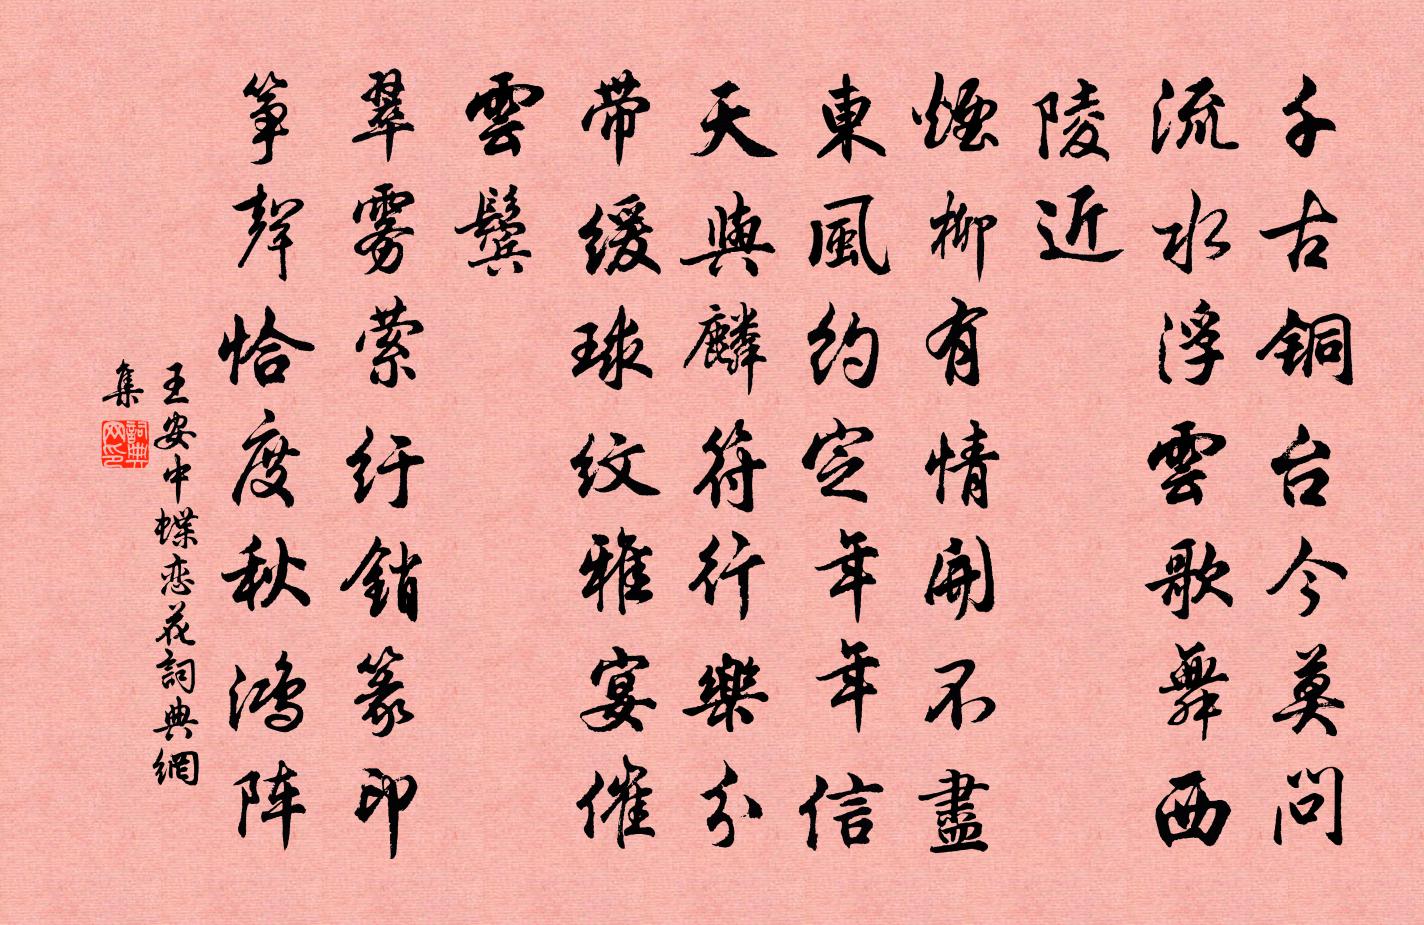 千古銅台今莫問
流水浮雲歌舞西
陵近
煙柳有情開不盡
東風約定年年信
天與麟符行樂分
带緩球紋雅宴催
雲鬓
翠雾萦纡銷篆印
筝聲恰度秋鸿阵
王安中蝶恋花詞典網
集
詞典网印